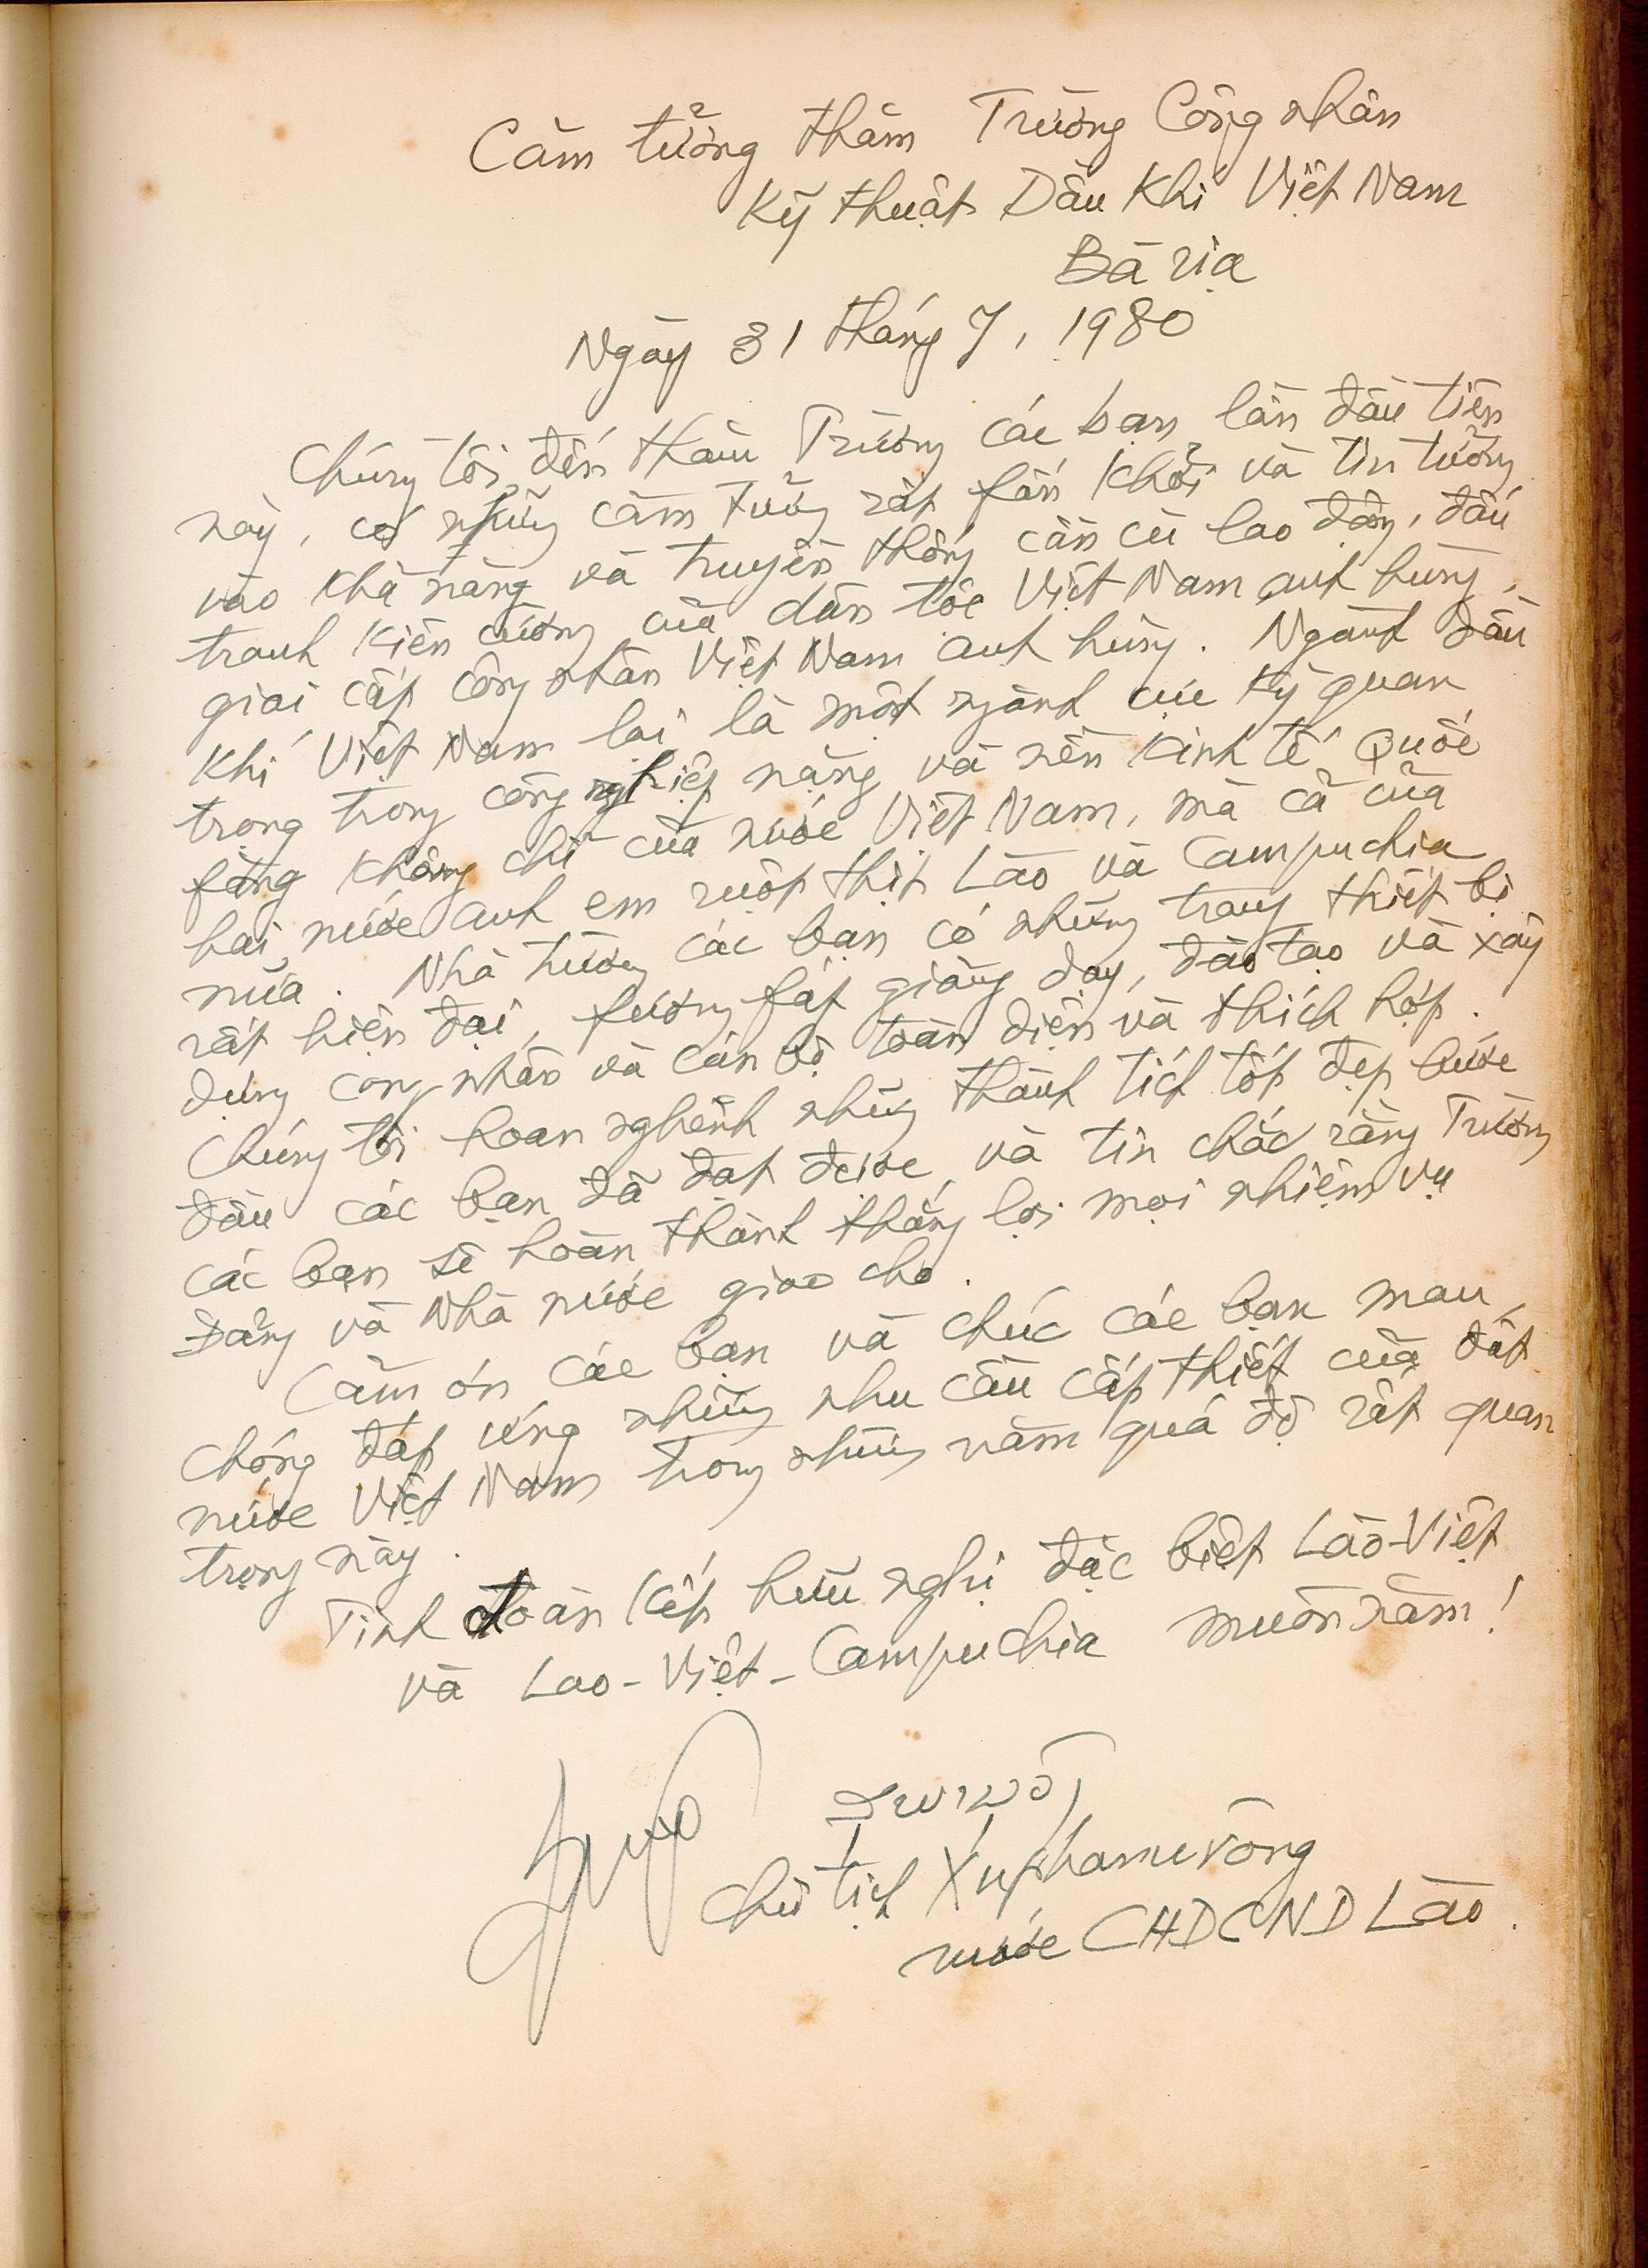 Cảm tưởng thăm Trường Công nhân
Kỹ thuật Dầu Khí Việt Nam
Bà rịa
Ngày 31 tháng 7, 1980
Chúng tôi đến thăm Trường các bạn lần đầu tiên
này, có những cảm tưởng rất fấn khởi và tin tưởng
vào khả năng và truyền thống cần cù lao động, đấu
tranh kiên cường của dân tộc Việt Nam anh hùng,
giai cấp công nhân Việt Nam anh hùng. Ngành Dầu
Khí Việt Nam lại là một ngành cực kỳ quan
trọng trong công nghiệp nặng và nền kinh tế Quốc
fòng không chỉ của nước Việt Nam, mà cả của
hai nước anh em ruột thịt Lào và Campuchia
nữa. Nhà trường các bạn có những trang thiết bị
rất hiện đại, fương fáp giảng dạy, đào tạo và xây
dựng công nhân và cán bộ toàn diện và thích hợp.
Chúng tôi hoan nghênh những thành tích tốt đẹp bước
đầu các bạn đã đạt được và tin chắc rằng Trường
các bạn sẽ hoàn thành thắng lợi mọi nhiệm vụ
Đảng và Nhà nước giao cho.
Cảm ơn các bạn và chúc các bạn mau
chóng đáp ứng những nhu cầu cấp thiết của đất
nước Việt Nam trong những năm quá độ rất quan
trọng này.
Tình đoàn kết hữu nghị đặc biệt Lào-Việt
và Lao-Việt-Campuchia muôn năm!
Chủ tịch Xuphanuvông
nước CHDCND Lào.